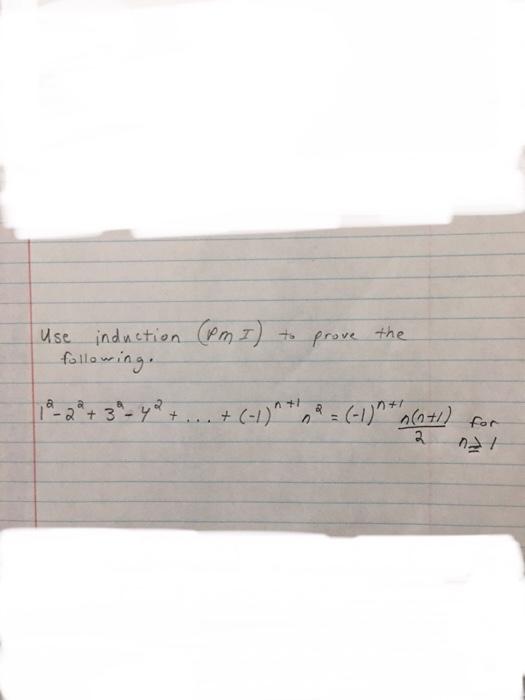 Use induction (PMI) to prove the
following.
1² - 2² + 3² - 4² + ... + (-1)ⁿ⁺¹ n² = (-1)ⁿ⁺¹ n(n+1)/2 for
n ≥ 1